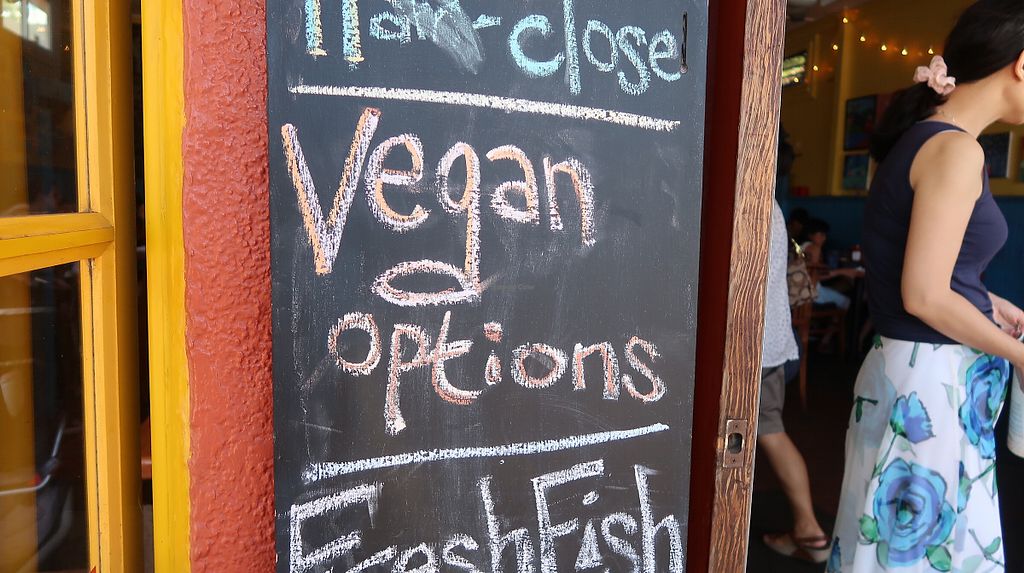 11am-close
Vegan
options
Fresh Fish